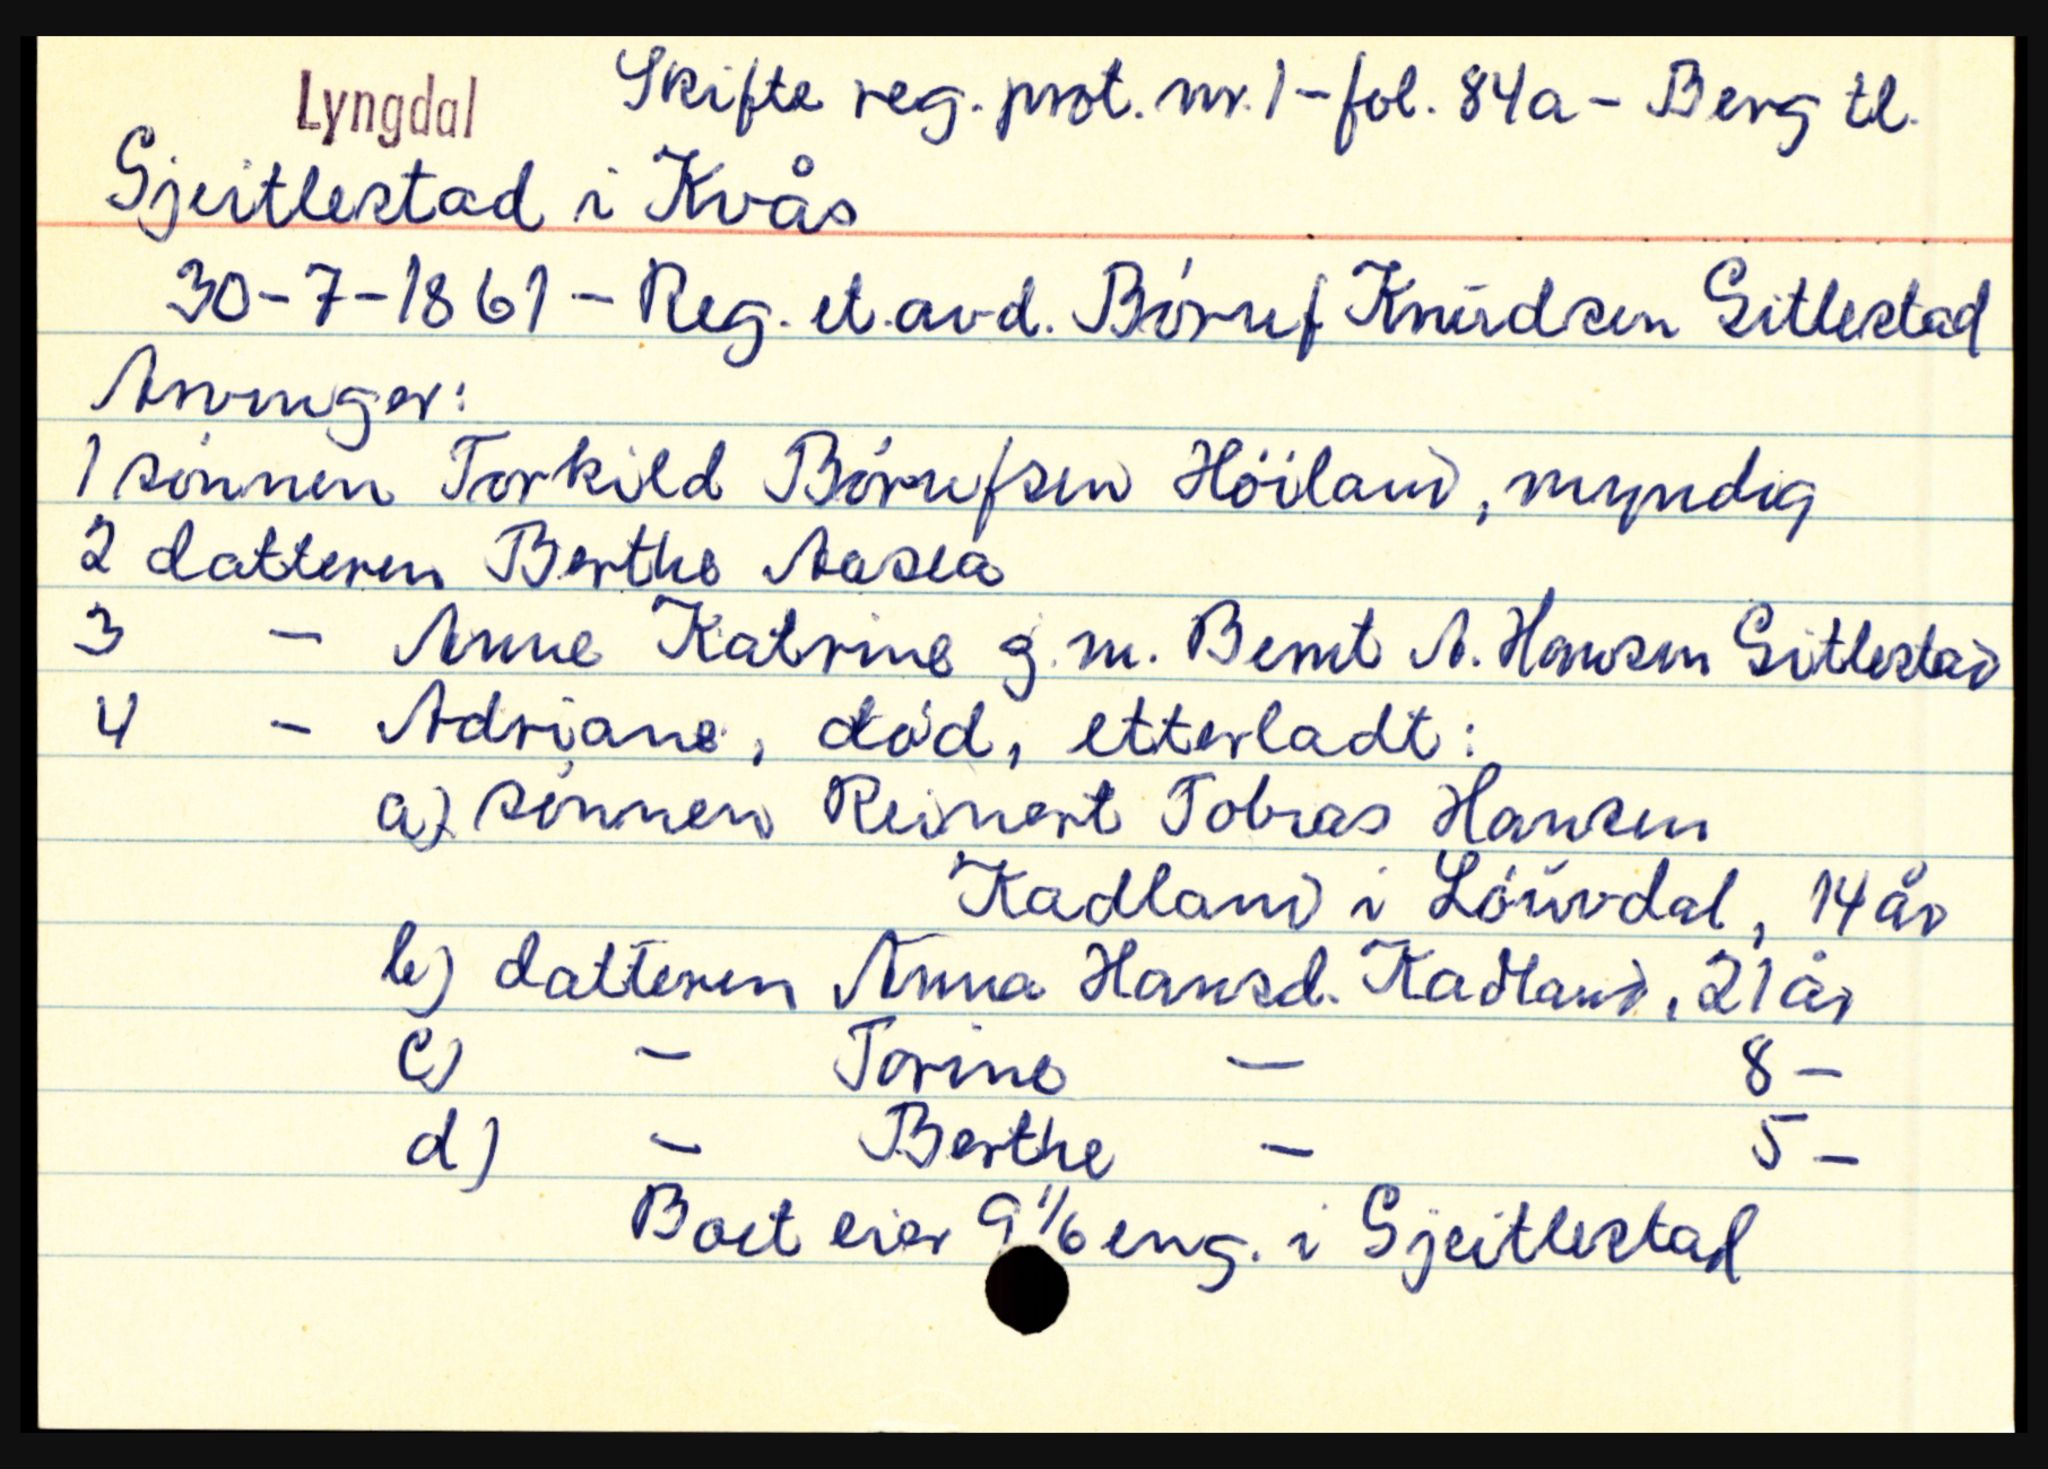 Lyngdal Skifte reg. prot. nr. 1 - fol. 84a - Berg tl.
Gjeitlestad i Kvås
30-7-1861 - Reg. et. avd. Bóruf Knŭdsen Gitlestad
Arvinger:
1 sónnen Torkild Bórufsen Höiland, myndig
2 datteren Berthe Aasea
3 - Anne Katrine g. m. Bernt A. Hansen Gitlestad
4 - Adriane, dód, etterladt:
a) sónnen Reinert Tobias Hansen
Kadland i Lóŭvdal, 14 år
b) datteren Anna Hansd. Kadland, 21 år
c) - Torine - 8 -
d) - Berthe - 5 -
Boet eier 9 1/6 eng. i Gjeitlestad